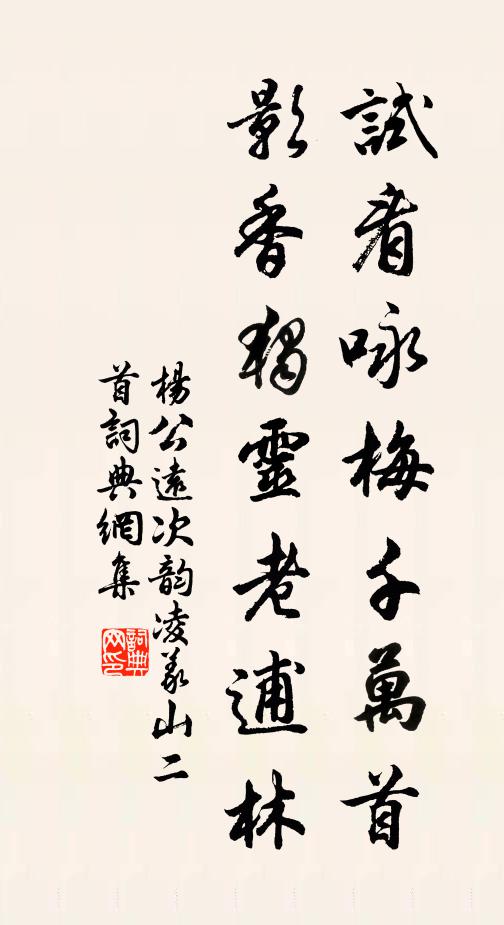 試看咏梅千萬首
影香獨靈老逋林
楊公遠次韵凌義山二
首詞典網集
詞典网印